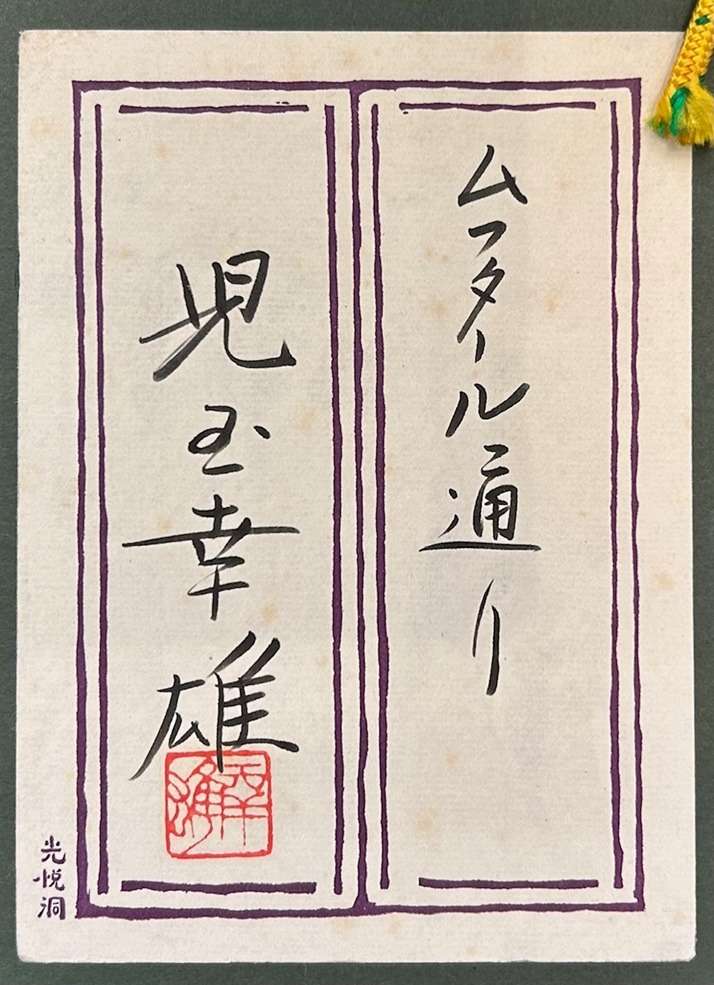 ムフタール通り
児玉幸雄
幸雄
光悦洞